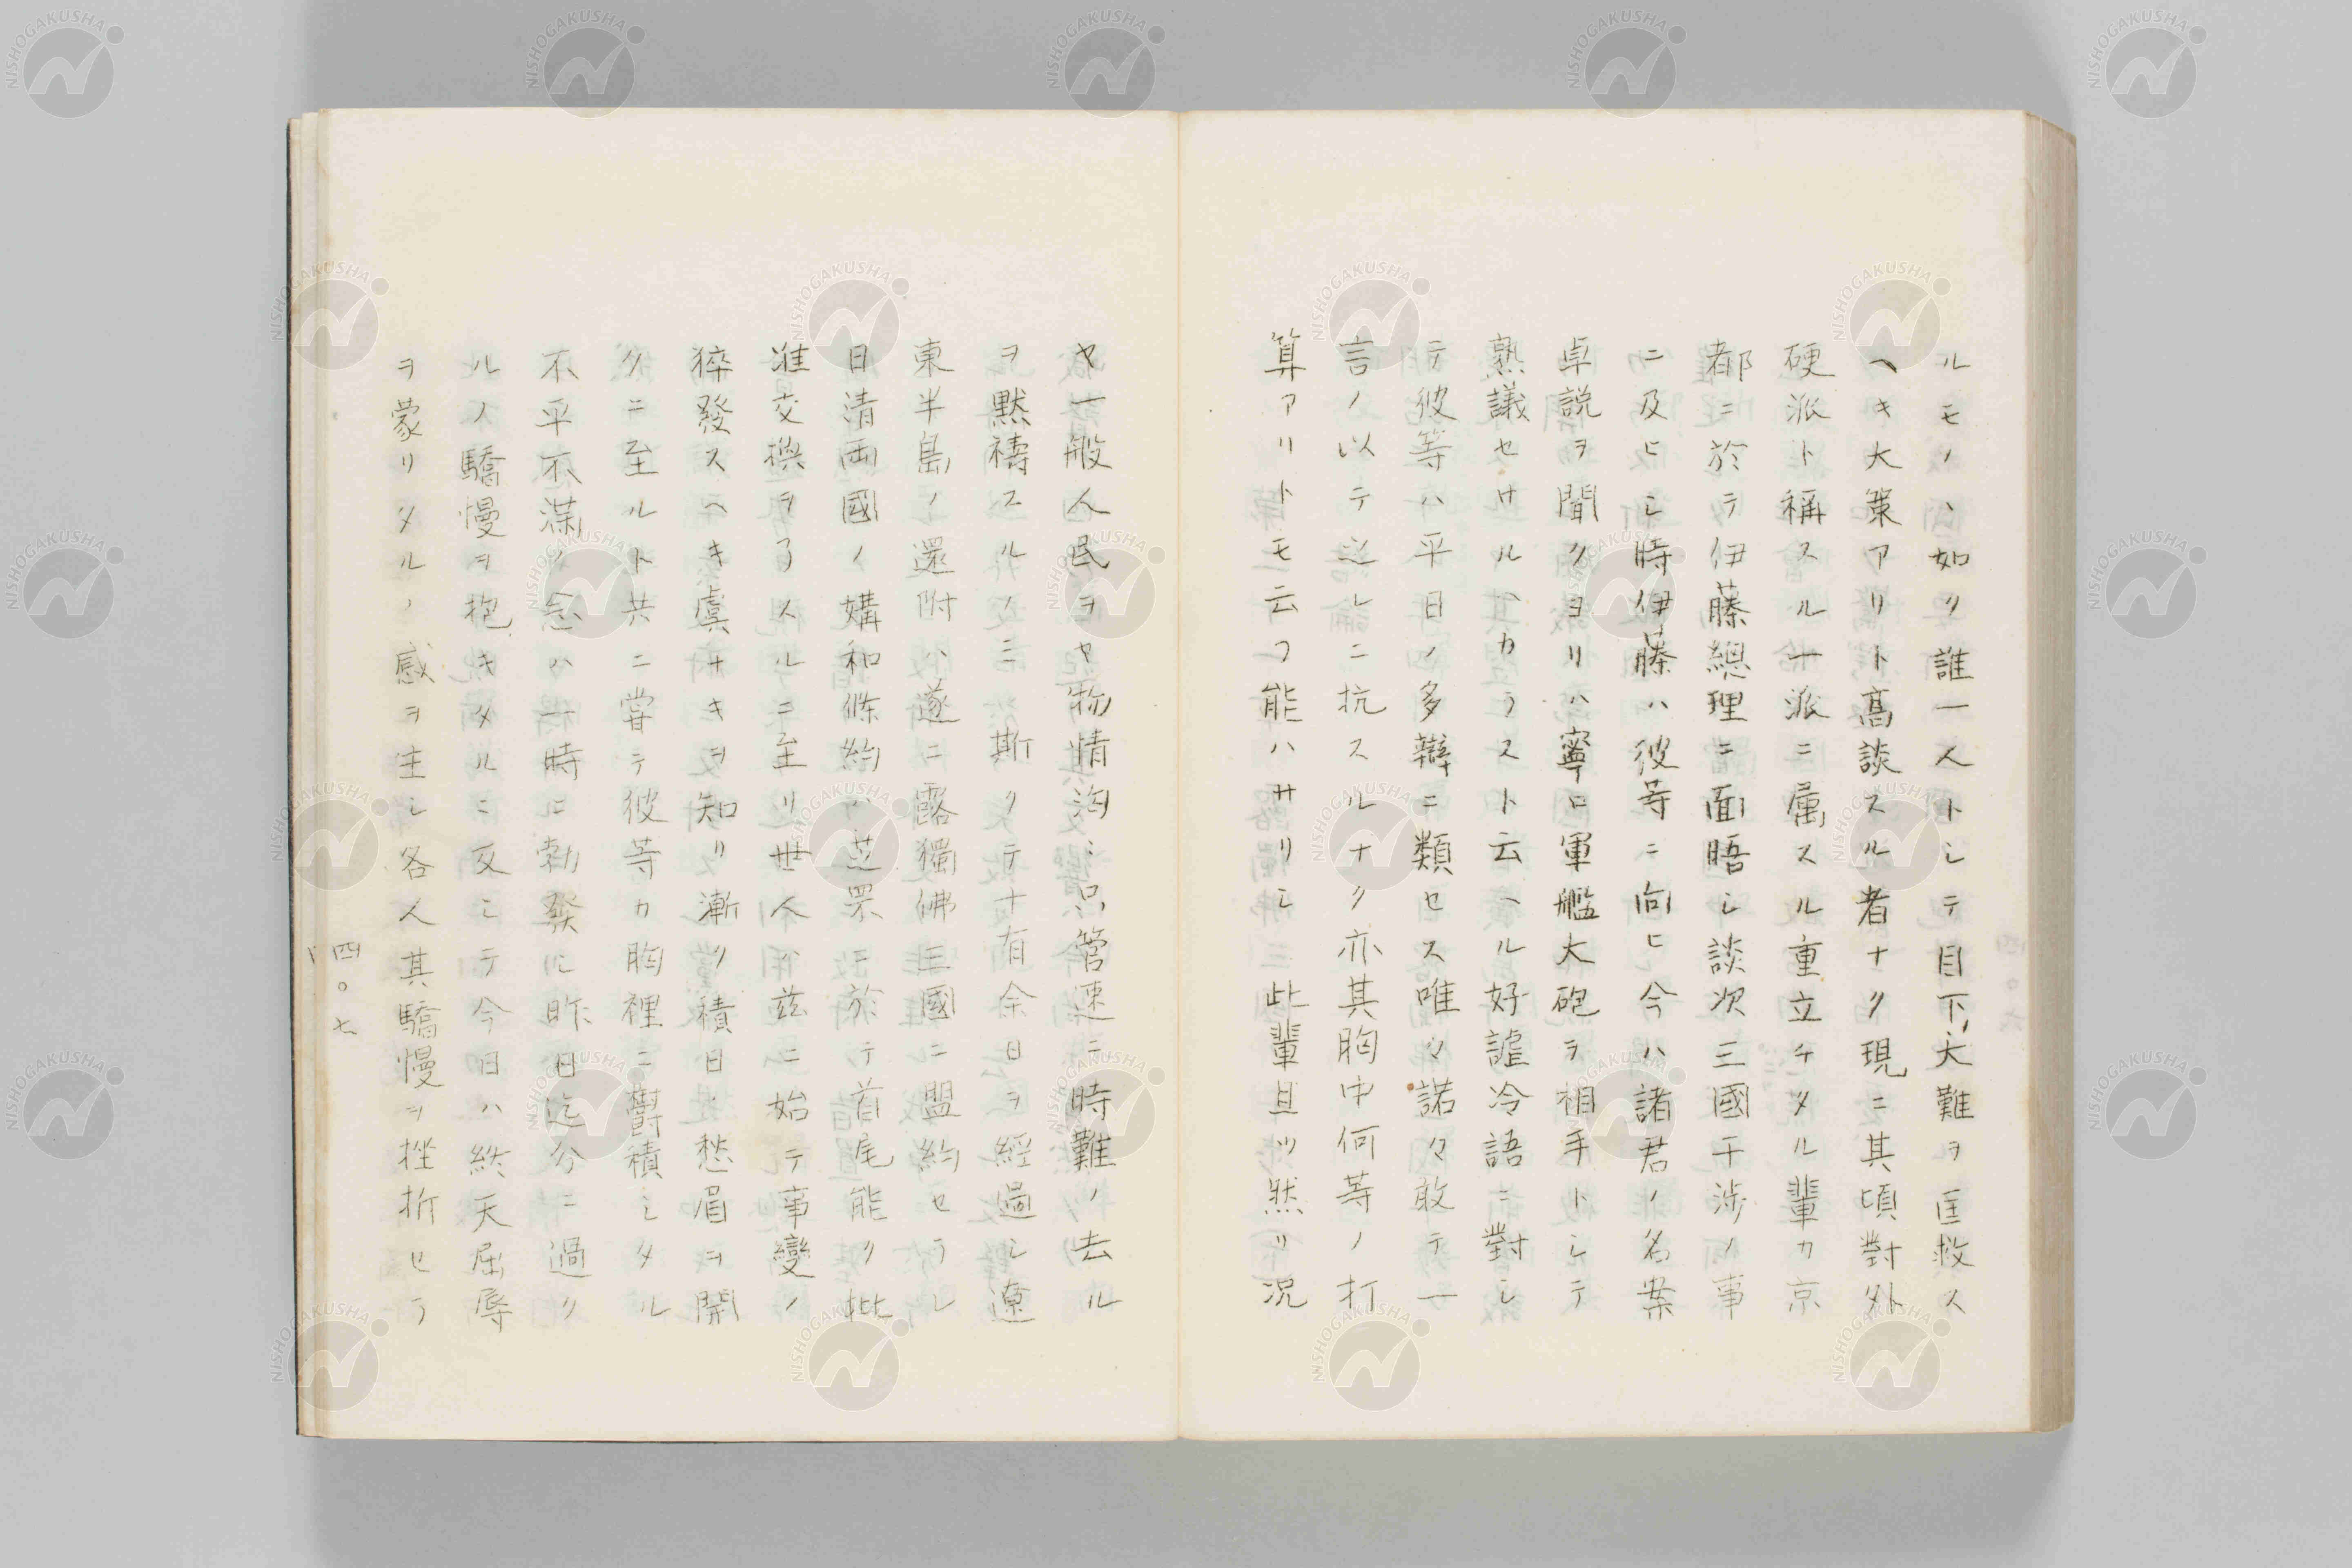 ルモノハ如ク誰一人トシテ目下大難ヲ匡救ス
ヘキ大策アリト高談スル者ナク現ニ其頃對外
硬派ト稱スル一派ニ属スル重立チタル輩カ京
都ニ於テ伊藤總理ニ面晤シ談次三國干渉ノ事
ニ及ヒシ時伊藤ハ彼等ニ向ヒ今ハ諸君ノ名案
卓説ヲ聞クヨリハ寧ロ軍艦大砲ヲ相手トシテ
熟議セサルヘカラスト云ヘル好謔冷語ニ對シ
テ彼等ハ平日ノ多辯ニ類セス唯々諾々敢テ一
言ノ以テ之レニ抗スルナク亦其胸中何等ノ打
算アリトモ云フ能ハサリシ此輩且ツ然リ況
ヤ一般人民ヲヤ物情洶々只管速ニ時難ノ去ル
ヲ黙禱スルノミ斯クテ十有余日ヲ經過シ遼
東半島ノ還附ハ遂ニ露獨佛三國ニ盟約セラレ
日清両國ノ媾和條約ハ芝罘ニ於テ首尾能ク批
准交換ヲ了スルニ至リ世人ハ茲ニ始テ事變ノ
猝發スヘキ虞ナキヲ知リ漸ク積日ノ愁眉ヲ開
クニ至ルト共ニ嘗テ彼等カ胸裡ニ欝積シタル
不平不満ノ念ハ一時ニ勃發シ昨日迄分ニ過ク
ルノ驕慢ヲ抱キタルニ反シテ今日ハ終天屈辱
ヲ蒙リタルノ感ヲ生シ各人其驕慢ヲ挫折セラ
四〇七
NISHOGAKUSHA